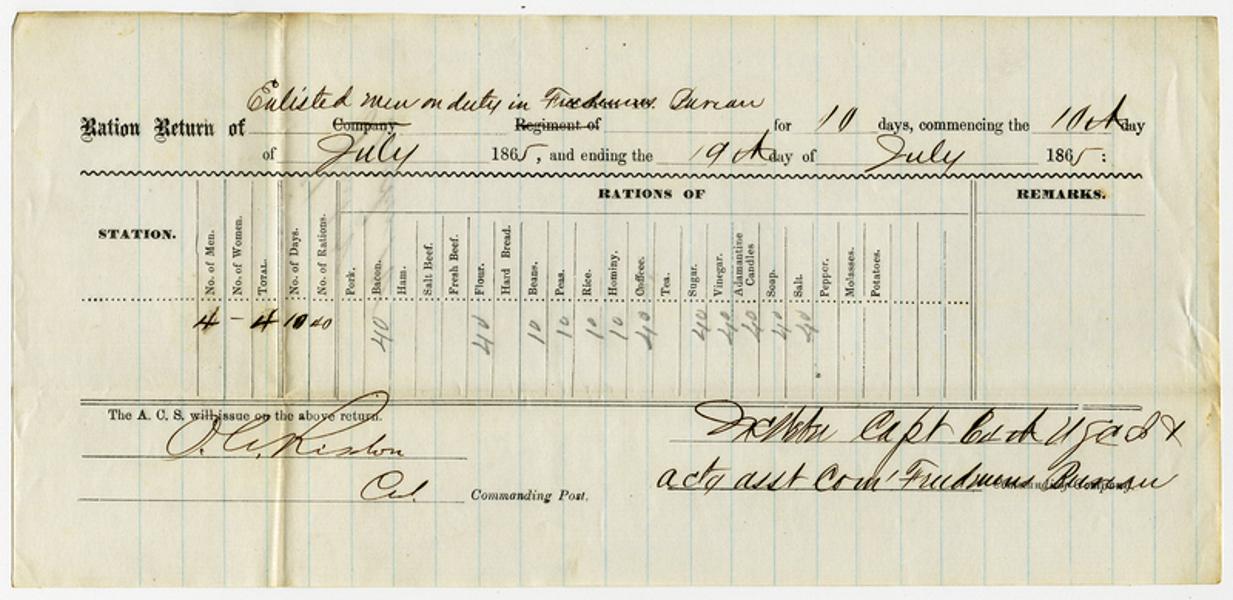 Enlisted men on duty in Freedmens Bureau
Ration Return of Company Regiment of for 10 days, commencing the 10th day
of July 1865, and ending the 19th day of July 1865:
RATIONS OF
REMARKS.
STATION.
No. of Men. No. of Women. TOTAL. No. of Days. No. of Rations. Pork. Bacon. Ham. Salt Beef. Fresh Beef. Flour. Hard Bread. Beans. Peas. Rice. Hominy. Coffee. Tea. Sugar. Vinegar. Adamantine Candles Soap. Salt. Pepper. Molasses. Potatoes.
4 – 4 10 40 40 40 10 10 10 10 40 40 40 40 40 40
The A. C. S. will issue on the above return.
Capt
Col. Commanding Post.
actg asst Com Freedmens Bureau Commanding Company.